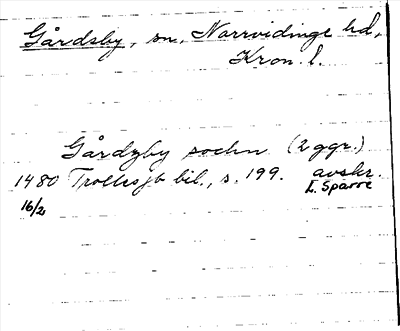 Gårdsby, sn, Norrvidinge hd,
Kron. l.
Gårdzby sochn (2 ggr.)
1480 Trolles jb bil., s. 199. avskr.
16/2 L. Sparre